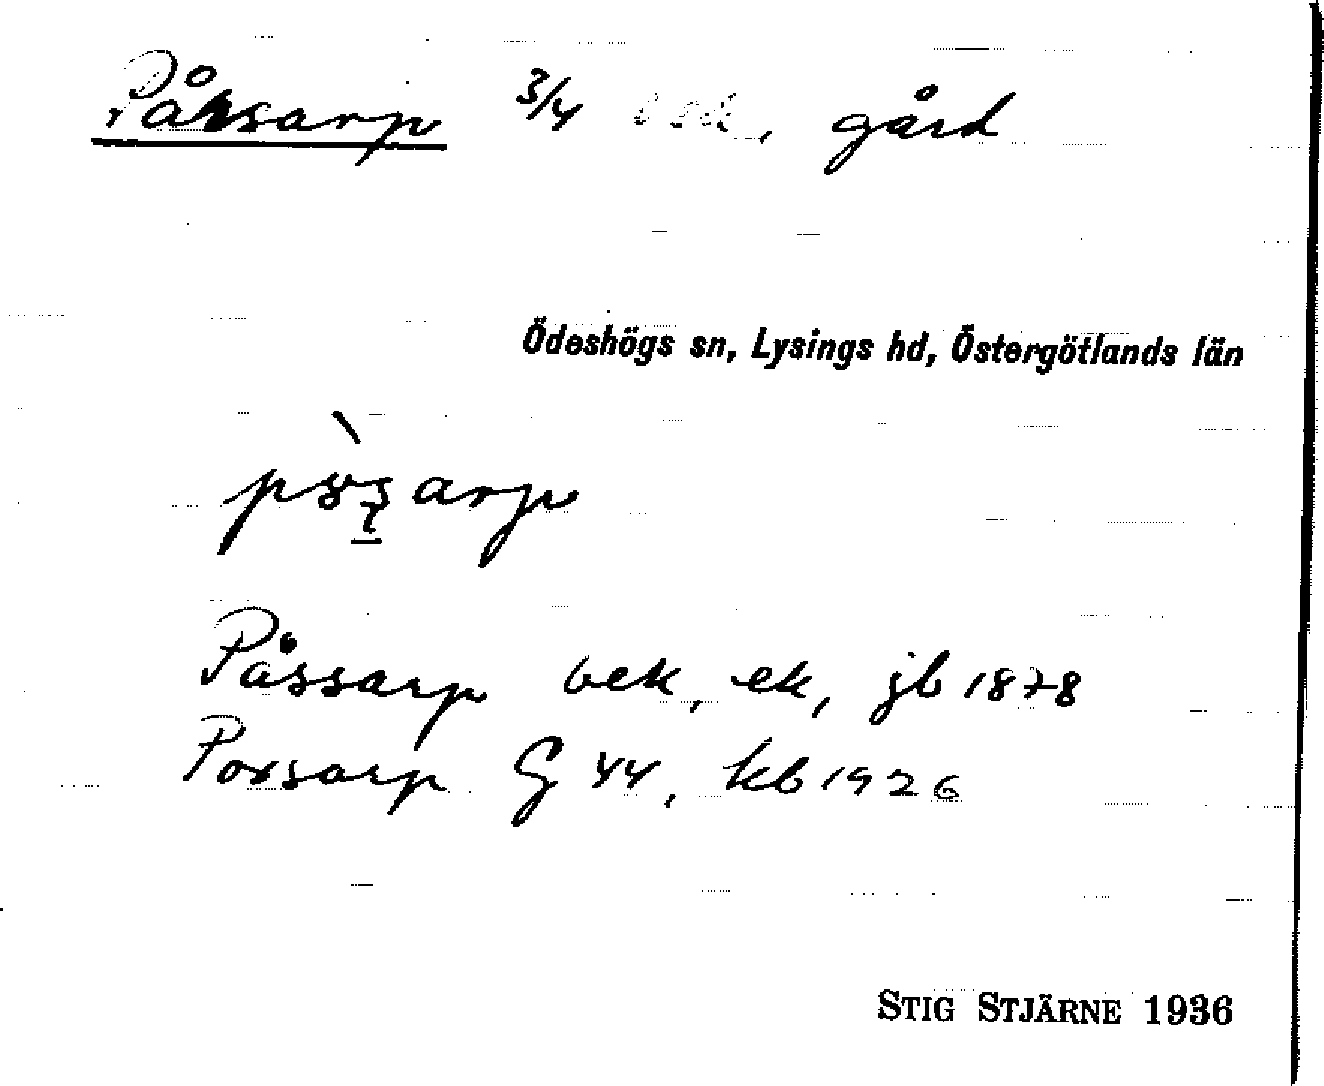 Påssarp 3/4 , gård
Ödeshögs sn, Lysings hd, Östergötlands län
Påssarp bek, ek, jb 1878
Poxsarp G 44, kb 1926
STIG STJÄRNE 1936